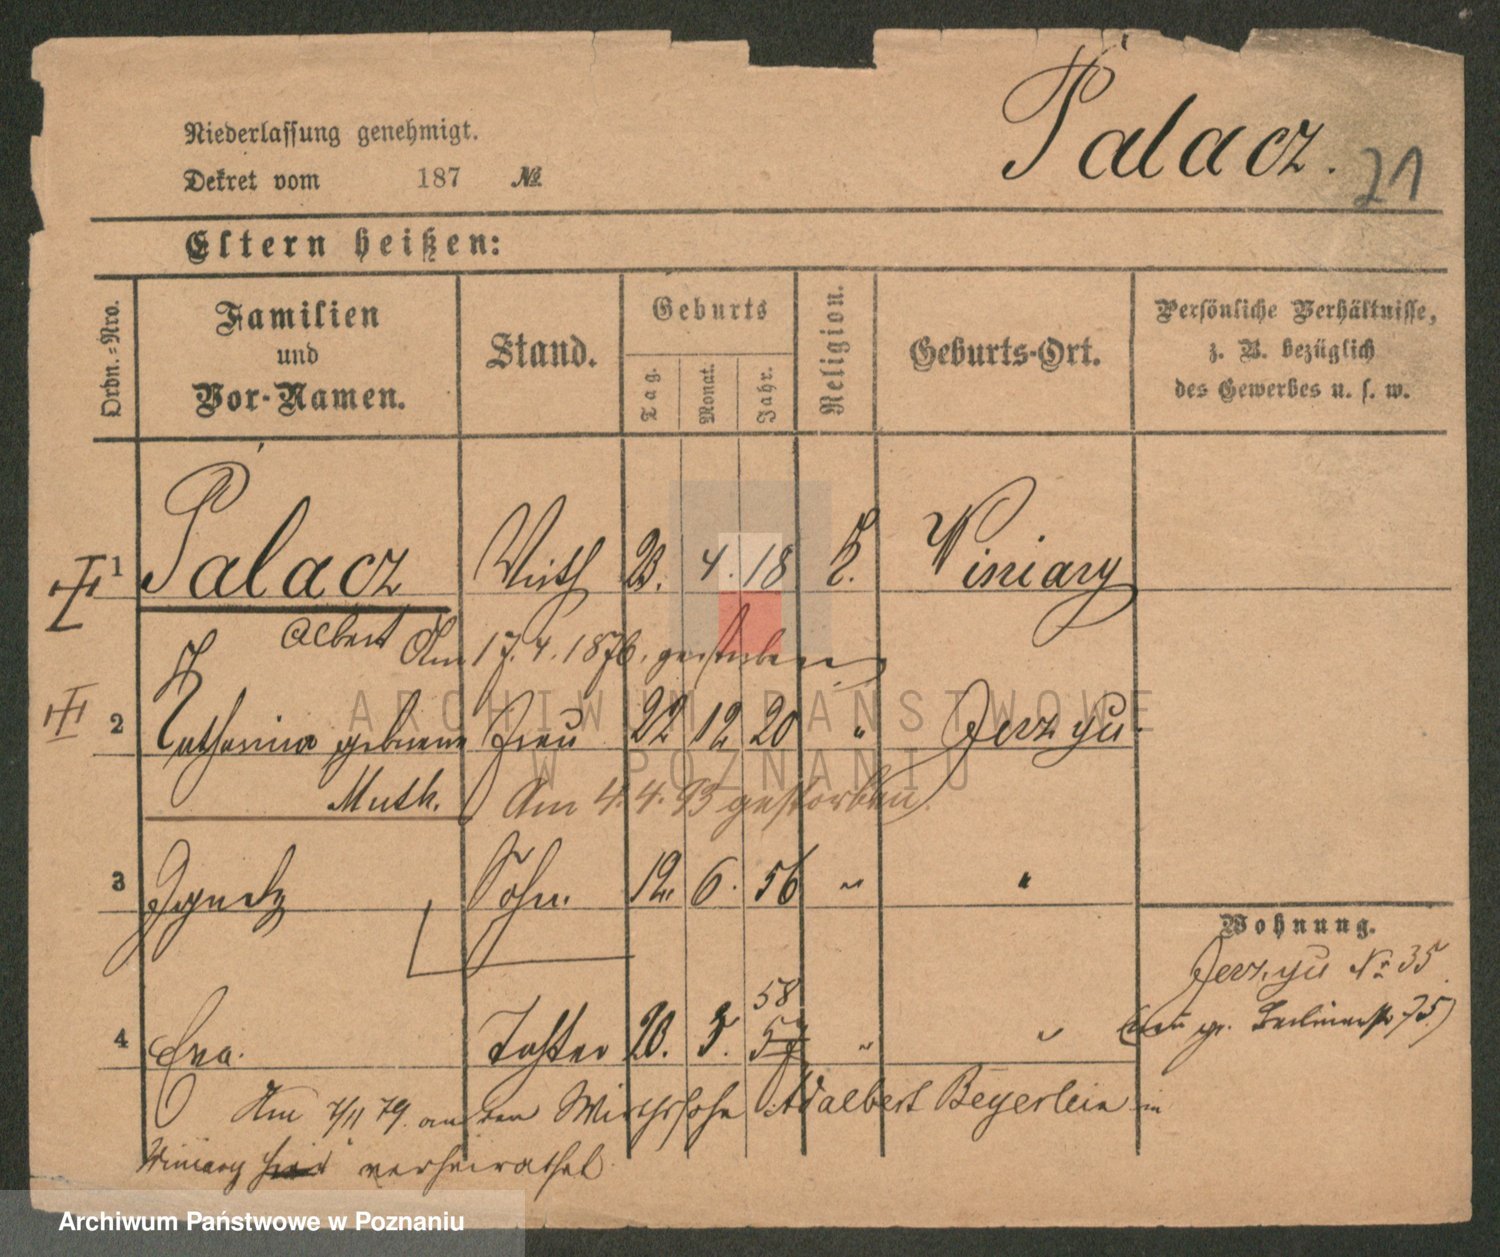 Palacz. 21
Niederlassung genehmigt.
Dekret vom 187 №
Eltern heißen:
Ordn.=Nro. Familien und Vor-Namen. Stand. Geburts Tag. Monat. Jahr. Religion. Geburts-Ort. Persönliche Verhältnisse, z. B. bezüglich des Gewerbes u. s. w.
1 Palacz Wirth 23. 4. 18 K. Winiary
Albert Am 17.4.1876. gestorben
2 Katharina geborene Frau 22 12 20 " Jerzyce
Muth. Am 4.4.93 gestorben
3 Ignatz Sohn. 12. 6. 56 " "
Wohnung.
Jerzyce № 35
58
4 Eva. Tochter 20. 3. 57 " "
Berlinerstr 75)
Am 7/11 79. an den Wirthssohn Adalbert Beyerlein in
Winiary verheirathet
ARCHIWUM PAŃSTWOWE
W POZNANIU
Archiwum Państwowe w Poznaniu